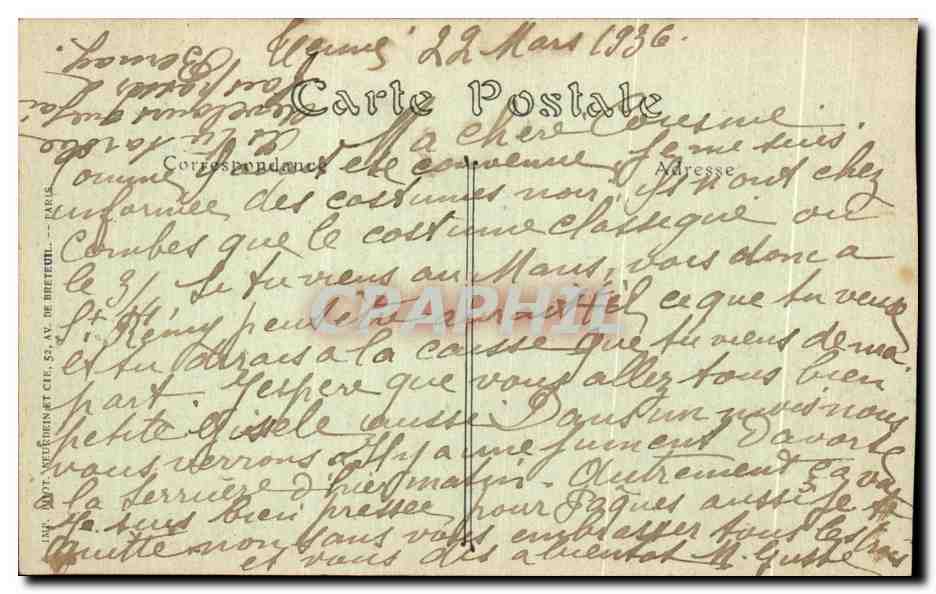 22 Mars 1936.
Carte Postale
Ma chère Cousine
Correspondance
Adresse
Comme il est été convenue, je me suis
informée des costumes noir, ils n'ont chez
Combes que le costume classique ou
le 31 Si tu viens au Mans, vois donc a
St Rémy peut être aurait il ce que tu veux
et tu dirais a la caisse que tu viens de ma
part. J'espère que vous allez tous bien
petite Gisele aussi Dans un mois nous
vous verrons Il y a une jument d'avorté
la d'hier matin. Autrement ça va
Je suis bien pressée pour Pâques aussi je te
quitte non sans vous embrasser tous les trois
et vous dis a bientot
IMP. PHOT. NEURDEIN ET CIE, 52, AV. DE BRETEUIL. -- PARIS
CRAPHIL